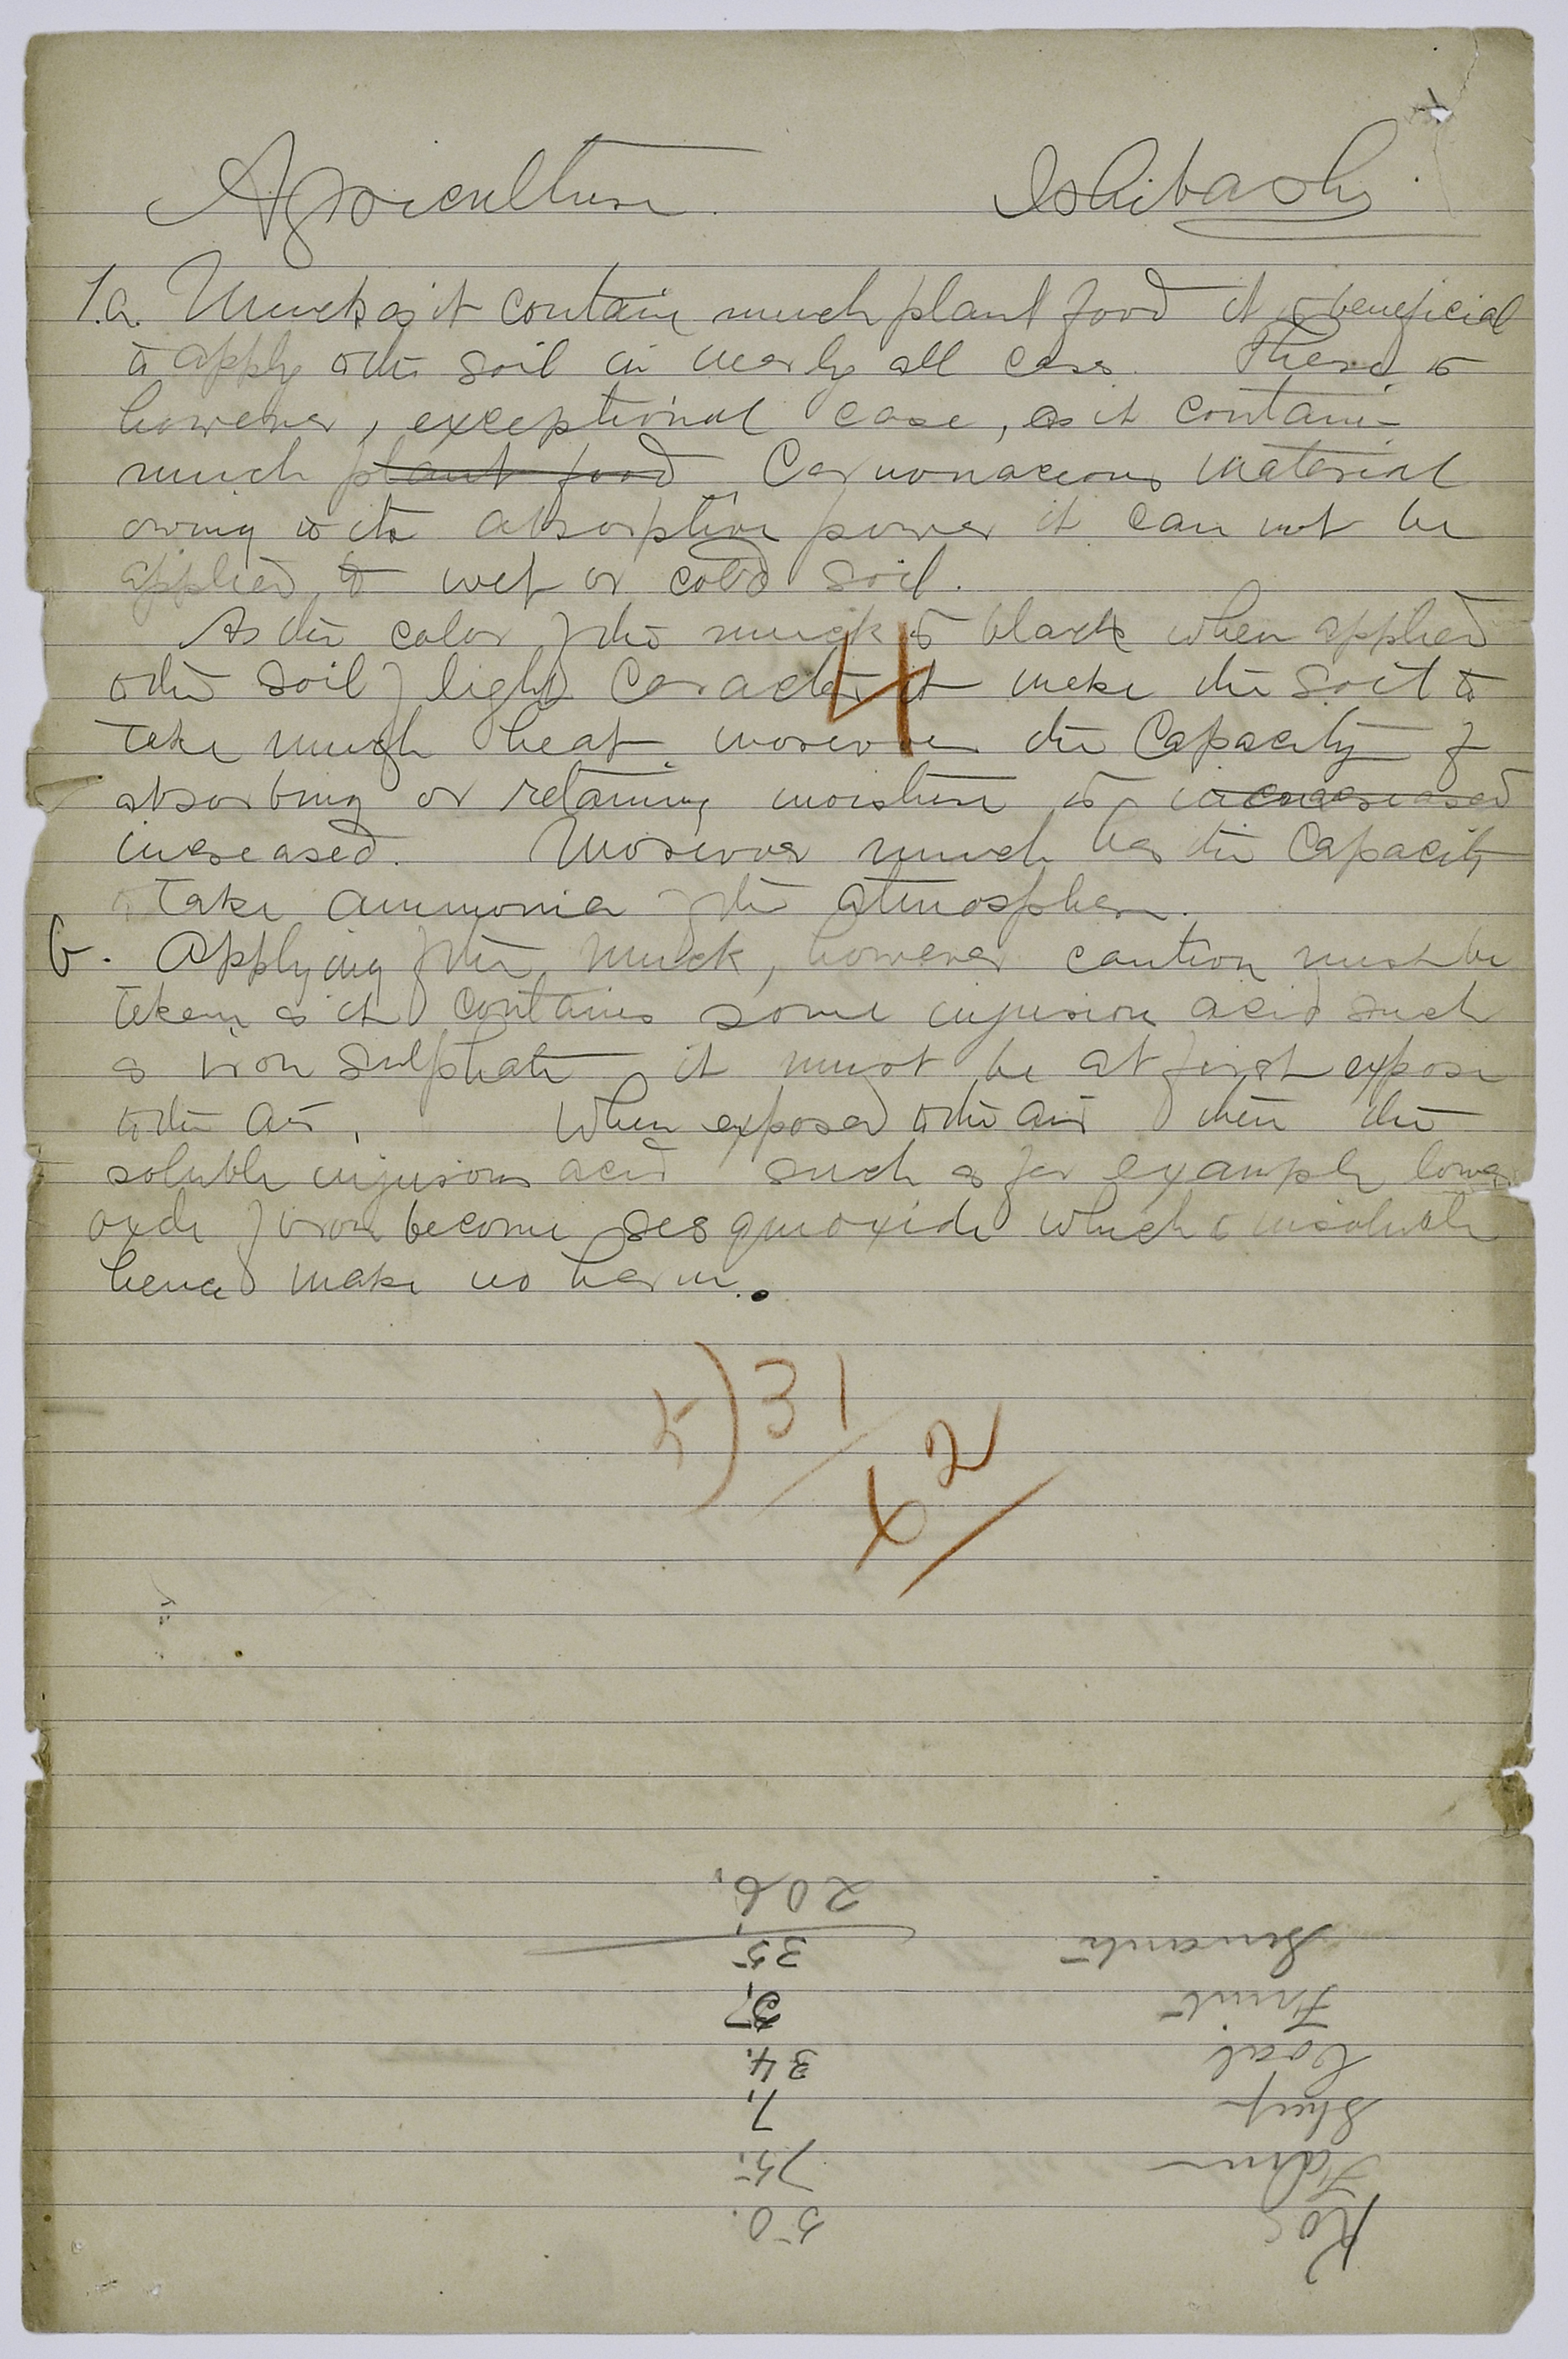 Agriculture. Ishibashi.
1.a. Muck as it contain much plant food it is beneficial
to apply to the soil in nearly all case. There is
however, exceptional case, as it contain
much plant food Carnonaceous material
owing to its absorptive power it can not be
applied to wet or cold soil.
As the color of the muck is black when applied
to the soil of light Caracter it make the soil to
4
take much heat moreover the Capacity of
absorbing or retaining moisture is
increased. Moreover much has the Capacity
to take ammonia of the atmosphere.
b. Applying of the muck, however caution must be
taken as it contains some injurious acid such
as iron sulphate it must be at first expose
to the air. When exposed to the air then the
soluble injurious acid such as for example lower
oxide of iron become sesquioxide which is insoluble
hence make no harm.
5)31
62
Ko 50.
75.
Sheep 7.
Coal 34.
Fruit
Servants 35
206.